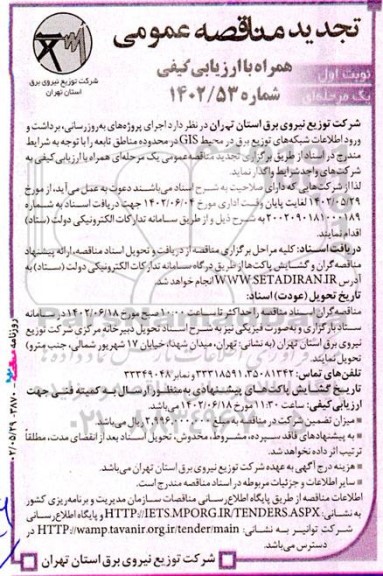 تجدید مناقصه عمومی
همراه با ارزیابی کیفی
شماره ۱۴۰۲/۵۳
نوبت اول
یک مرحله‌ای
شرکت توزیع نیروی برق
استان تهران
شرکت توزیع نیروی برق استان تهران در نظر دارد اجرای پروژه‌های به‌روزرسانی، برداشت و
ورود اطلاعات شبکه‌های توزیع برق در محیط GIS در محدوده مناطق تابعه را با توجه به شرایط
مندرج در اسناد از طریق برگزاری تجدید مناقصه عمومی یک مرحله‌ای همراه با ارزیابی کیفی به
شرکت‌های واجد شرایط واگذار نماید.
لذا از شرکت‌هایی که دارای صلاحیت به شرح اسناد می‌باشند دعوت به عمل می‌آید، از مورخ
۱۴۰۲/۰۵/۲۹ لغایت پایان وقت اداری مورخ ۱۴۰۲/۰۶/۰۴ جهت دریافت اسناد به شماره
۲۰۰۲۰۹۰۱۸۱۰۰۰۱۸۹ به شرح ذیل و از طریق سامانه تدارکات الکترونیکی دولت (ستاد)
اقدام نمایند.
دریافت اسناد: کلیه مراحل برگزاری مناقصه از دریافت و تحویل اسناد مناقصه، ارائه پیشنهاد
مناقصه‌گران و گشایش پاکت‌ها از طریق درگاه سامانه تدارکات الکترونیکی دولت (ستاد) به
آدرس WWW.SETADIRAN.IR انجام خواهد شد.
تاریخ تحویل (عودت) اسناد:
مناقصه‌گران اسناد مناقصه را حداکثر تا ساعت ۱۰:۰۰ صبح مورخ ۱۴۰۲/۰۶/۱۸ در سامانه
ستاد بارگزاری و به صورت فیزیکی نیز به شرح اسناد تحویل دبیرخانه مرکزی شرکت توزیع
نیروی برق استان تهران (به نشانی: تهران، میدان شهدا، خیابان ۱۷ شهریور شمالی، جنب مترو)
تحویل نمایند.
تلفن‌های تماس: ۳۵۰۸۱۳۴۲، ۳۳۳۱۸۵۹۱ و نمابر ۳۳۳۴۹۰۴۸
تاریخ گشایش پاکت‌های پیشنهادی به منظور ارسال به کمیته فنی جهت
ارزیابی کیفی: ساعت ۱۱:۳۰ مورخ ۱۴۰۲/۰۶/۱۸ می‌باشد.
میزان تضمین شرکت در مناقصه به مبلغ ریال می‌باشد.
به پیشنهادهای فاقد سپرده، مشروط، مخدوش، تحویل اسناد بعد از انقضای مدت، مطلقاً
ترتیب اثر داده نخواهد شد.
هزینه درج آگهی به عهده شرکت توزیع نیروی برق استان تهران می‌باشد.
سایر اطلاعات و جزئیات مربوطه در اسناد مناقصه مندرج است.
اطلاعات مناقصه از طریق پایگاه اطلاع‌رسانی مناقصات سازمان مدیریت و برنامه‌ریزی کشور
به نشانی: HTTP://IETS.MPORG.IR/TENDERS.ASPX و پایگاه اطلاع‌رسانی
شرکت توانیر به نشانی: HTTP://wamp.tavanir.org.ir/tender/main در
دسترس می‌باشد.
شرکت توزیع نیروی برق استان تهران